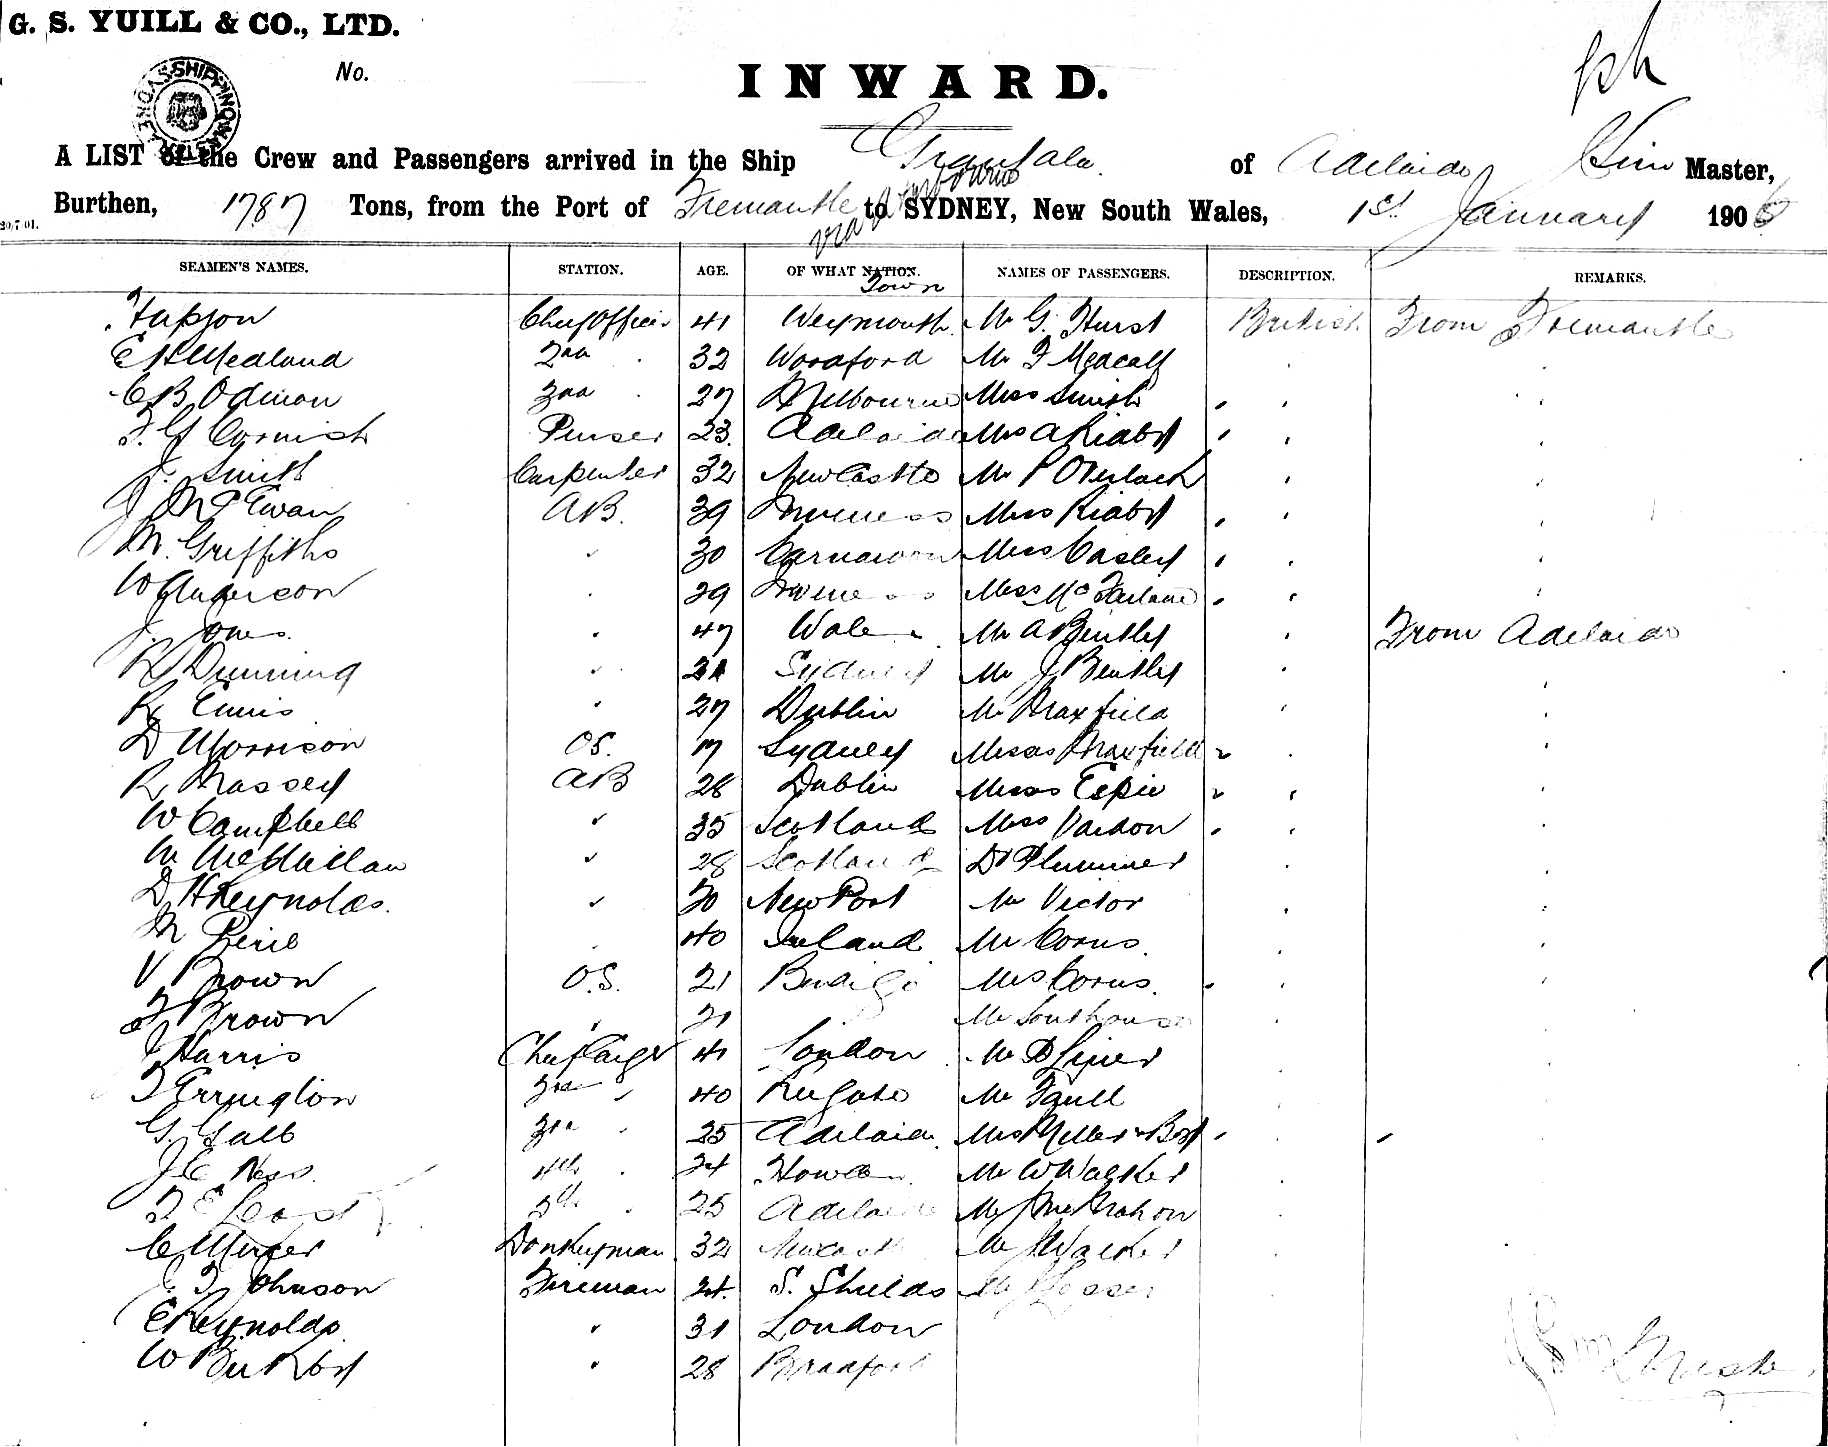 G. S. YUILL & CO., LTD.
No.
INWARD.
A LIST of the Crew and Passengers arrived in the Ship Grantala of Adelaide Sim Master,
Burthen, 1787 Tons, from the Port of Fremantle via Melbourne to SYDNEY, New South Wales, 1st January 190
20/7/01.
SEAMEN'S NAMES. STATION. AGE. OF WHAT NATION. Town NAMES OF PASSENGERS. DESCRIPTION. REMARKS.
Chief Officer 41 Weymouth Mr G. Hurst British From Fremantle
E Medland 2nd 32 Woodford Mr F Medcalf
C B Odman 3rd 27 Melbourne Miss Smith
F. G Cornish Purser 23 Adelaide Mrs A Riabt
J. Smith Carpenter 32 Newcastle Mr P Overlach
J McEwan AB. 39 Inverness Miss Riabt
M. Griffiths 30 Carnarvon Miss Casley
W Anderson 39 Inverness Miss McFarlane
J. Jones 47 Wales Mr A Bentley From Adelaide
R Dunning Sydney Mr J Bentley
R Ennis 27 Dublin Mr Maxfield
D Morrison OS. 17 Sydney Maxfield
R Massey AB 28 Dublin Miss Espie
W Campbell 35 Scotland Miss Vardon
M McMillan 28 Scotland Dr Plummer
D H Reynolds 30 New Port Mr Victor
M 40 Ireland Mr Corns
V Brown O.S. 21 Bendigo Mrs Corns.
F Brown 21 Mr
J Harris Chief 41 London Mr
F Errington 2nd 40 Reigate Mr
G. Galb 3rd 25 Adelaide Mrs Miller & Boy
J C Ness 4th 24 Mr W Walker
5th 25 Adelaide Mr McMahon
C Mercer Donkeyman 32 Newcastle Mr Walker
Johnson Fireman 24. S. Shields Mr
E Reynolds 31 London
W 28 Bradford